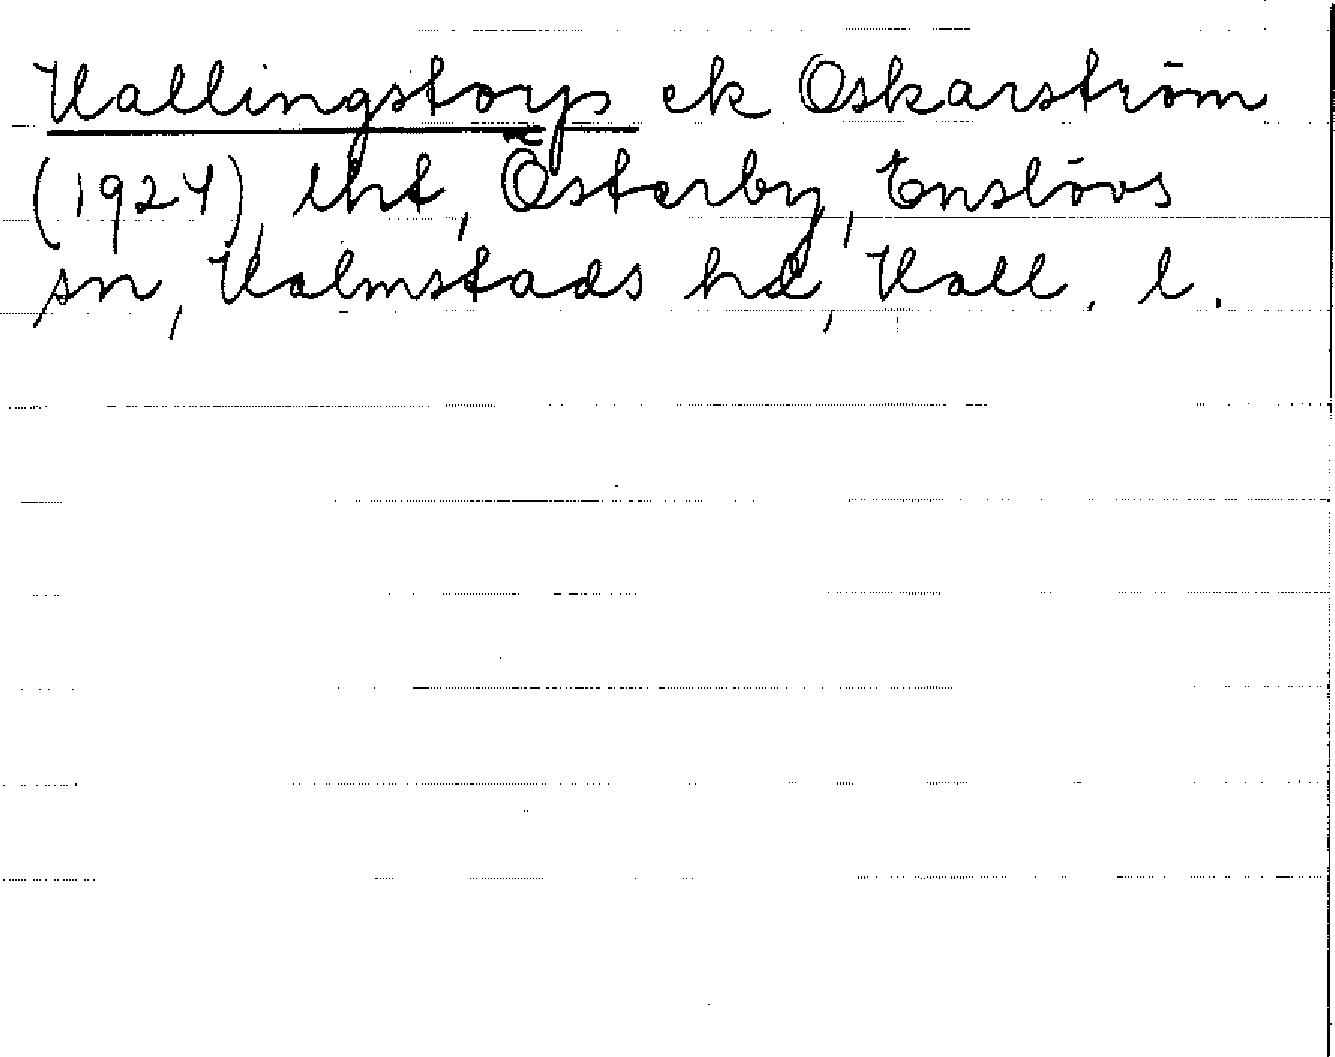 Hallingstorp ek Oskarström
(1924), lht, Österby, Enslövs
sn, Halmstads hd, Hall. l.